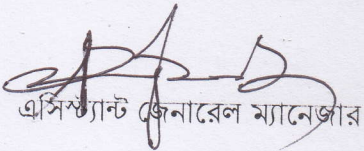 এসিস্ট্যান্ট জেনারেল ম্যানেজার